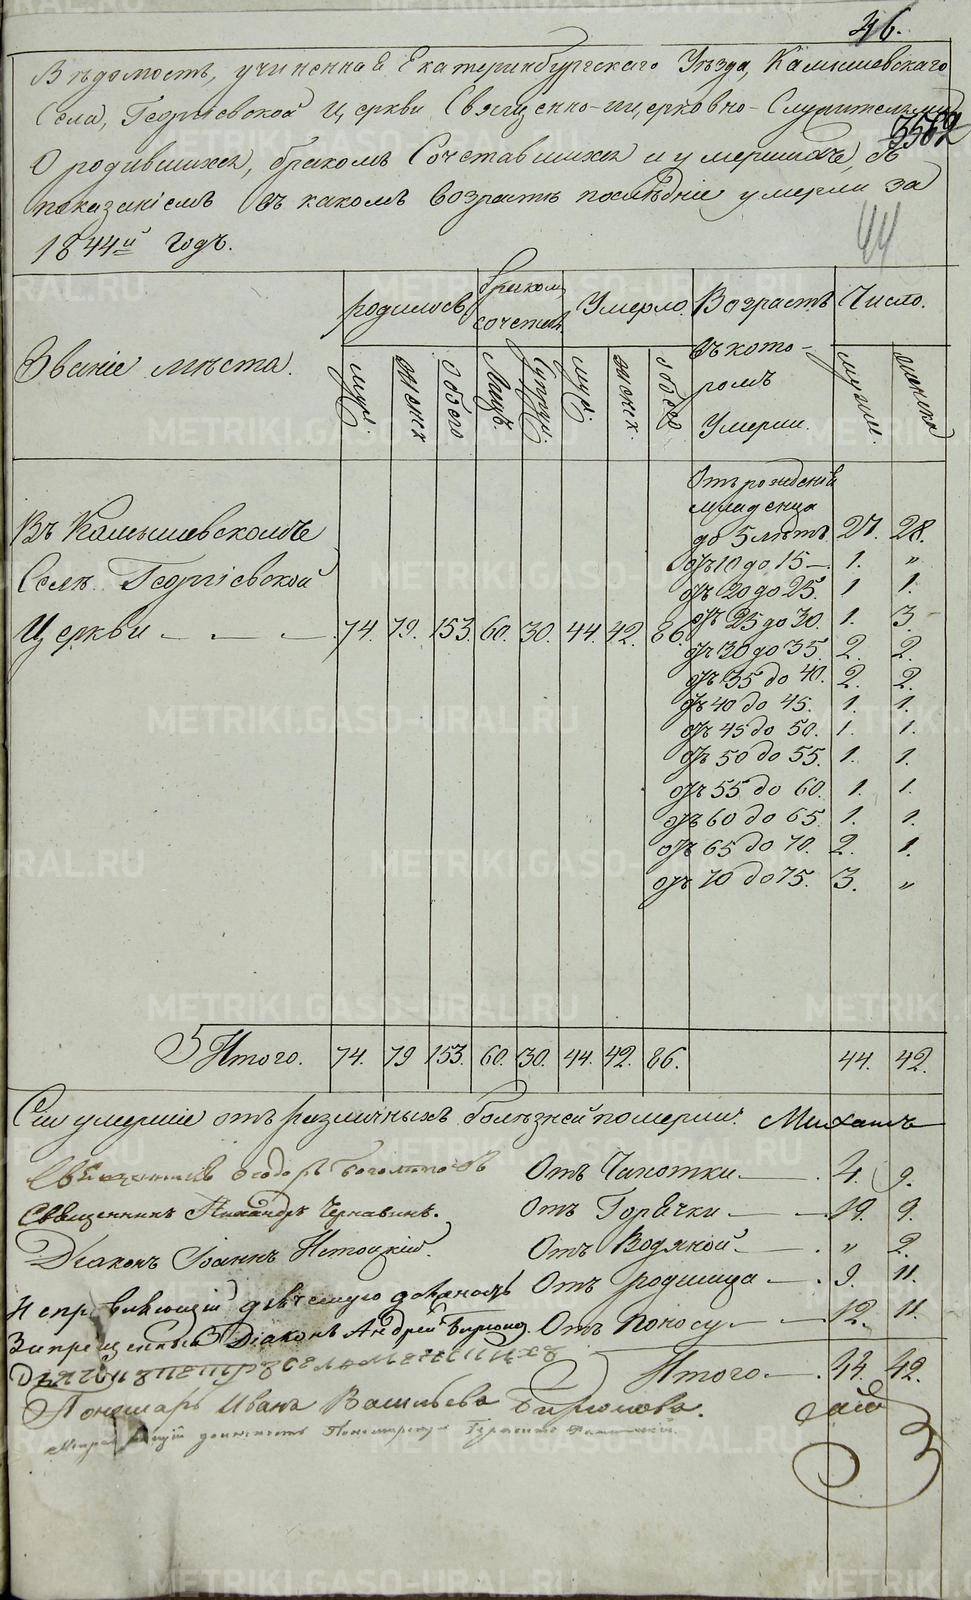 46.
Вѣдомость, учиненная Екатеринбургскаго Уѣзда, Камышевскаго
Села, Георгіевской Церкви Священно-и церковно-Служителями
3562
О родившихся, бракомъ Сочетавшихся и умершихъ, съ
показаніемъ въ какомъ возрастѣ послѣдніе умерли за
1844й годъ.
44
Званіе мѣста.
родилось
бракомъ сочетал.
Умерло.
Возрастъ въ кото-ромъ Умерли.
Число.
муж.
женск
обоего
Лицъ
Супруж.
муж.
женск.
обоего
мужск.
женска
Въ Камышевскомъ
Селѣ Георгіевской
Церкви — — — 74. 79. 153. 60. 30. 44. 42. 86.
Отъ рожденія
младенца
до 5 лѣтъ 27. 28.
отъ 10 до 15 — 1. "
отъ 20 до 25. 1 1.
отъ 25 до 30. 1. 3.
отъ 30 до 35. 2. 2.
отъ 35 до 40. 2. 2.
отъ 40 до 45. 1. 1.
отъ 45 до 50. 1. 1.
отъ 50 до 55. 1. 1.
отъ 55 до 60. 1. 1.
отъ 60 до 65. 1. 1.
отъ 65 до 70. 2. 1.
отъ 70 до 75. 3. "
Итого. 74. 79 153. 60. 30. 44. 42. 86. 44. 42.
Сіи умершіе отъ различныхъ болѣзней померли:
Священникъ Ѳеодоръ
Отъ Чахотки — 4. 9.
Священникъ Никандръ Чернавинъ.
Отъ Горячки — 19. 9.
Діаконъ Іоаннъ
Отъ Водяной — " 2.
должность
Отъ родимца — 9. 11.
Запрещенный Діаконъ Андрей
Отъ Поносу — 12. 11.
Итого — 44. 42.
Пономарь Иванъ Васильевъ Бирюковъ.
должность
METRIKI.GASO-URAL.RU